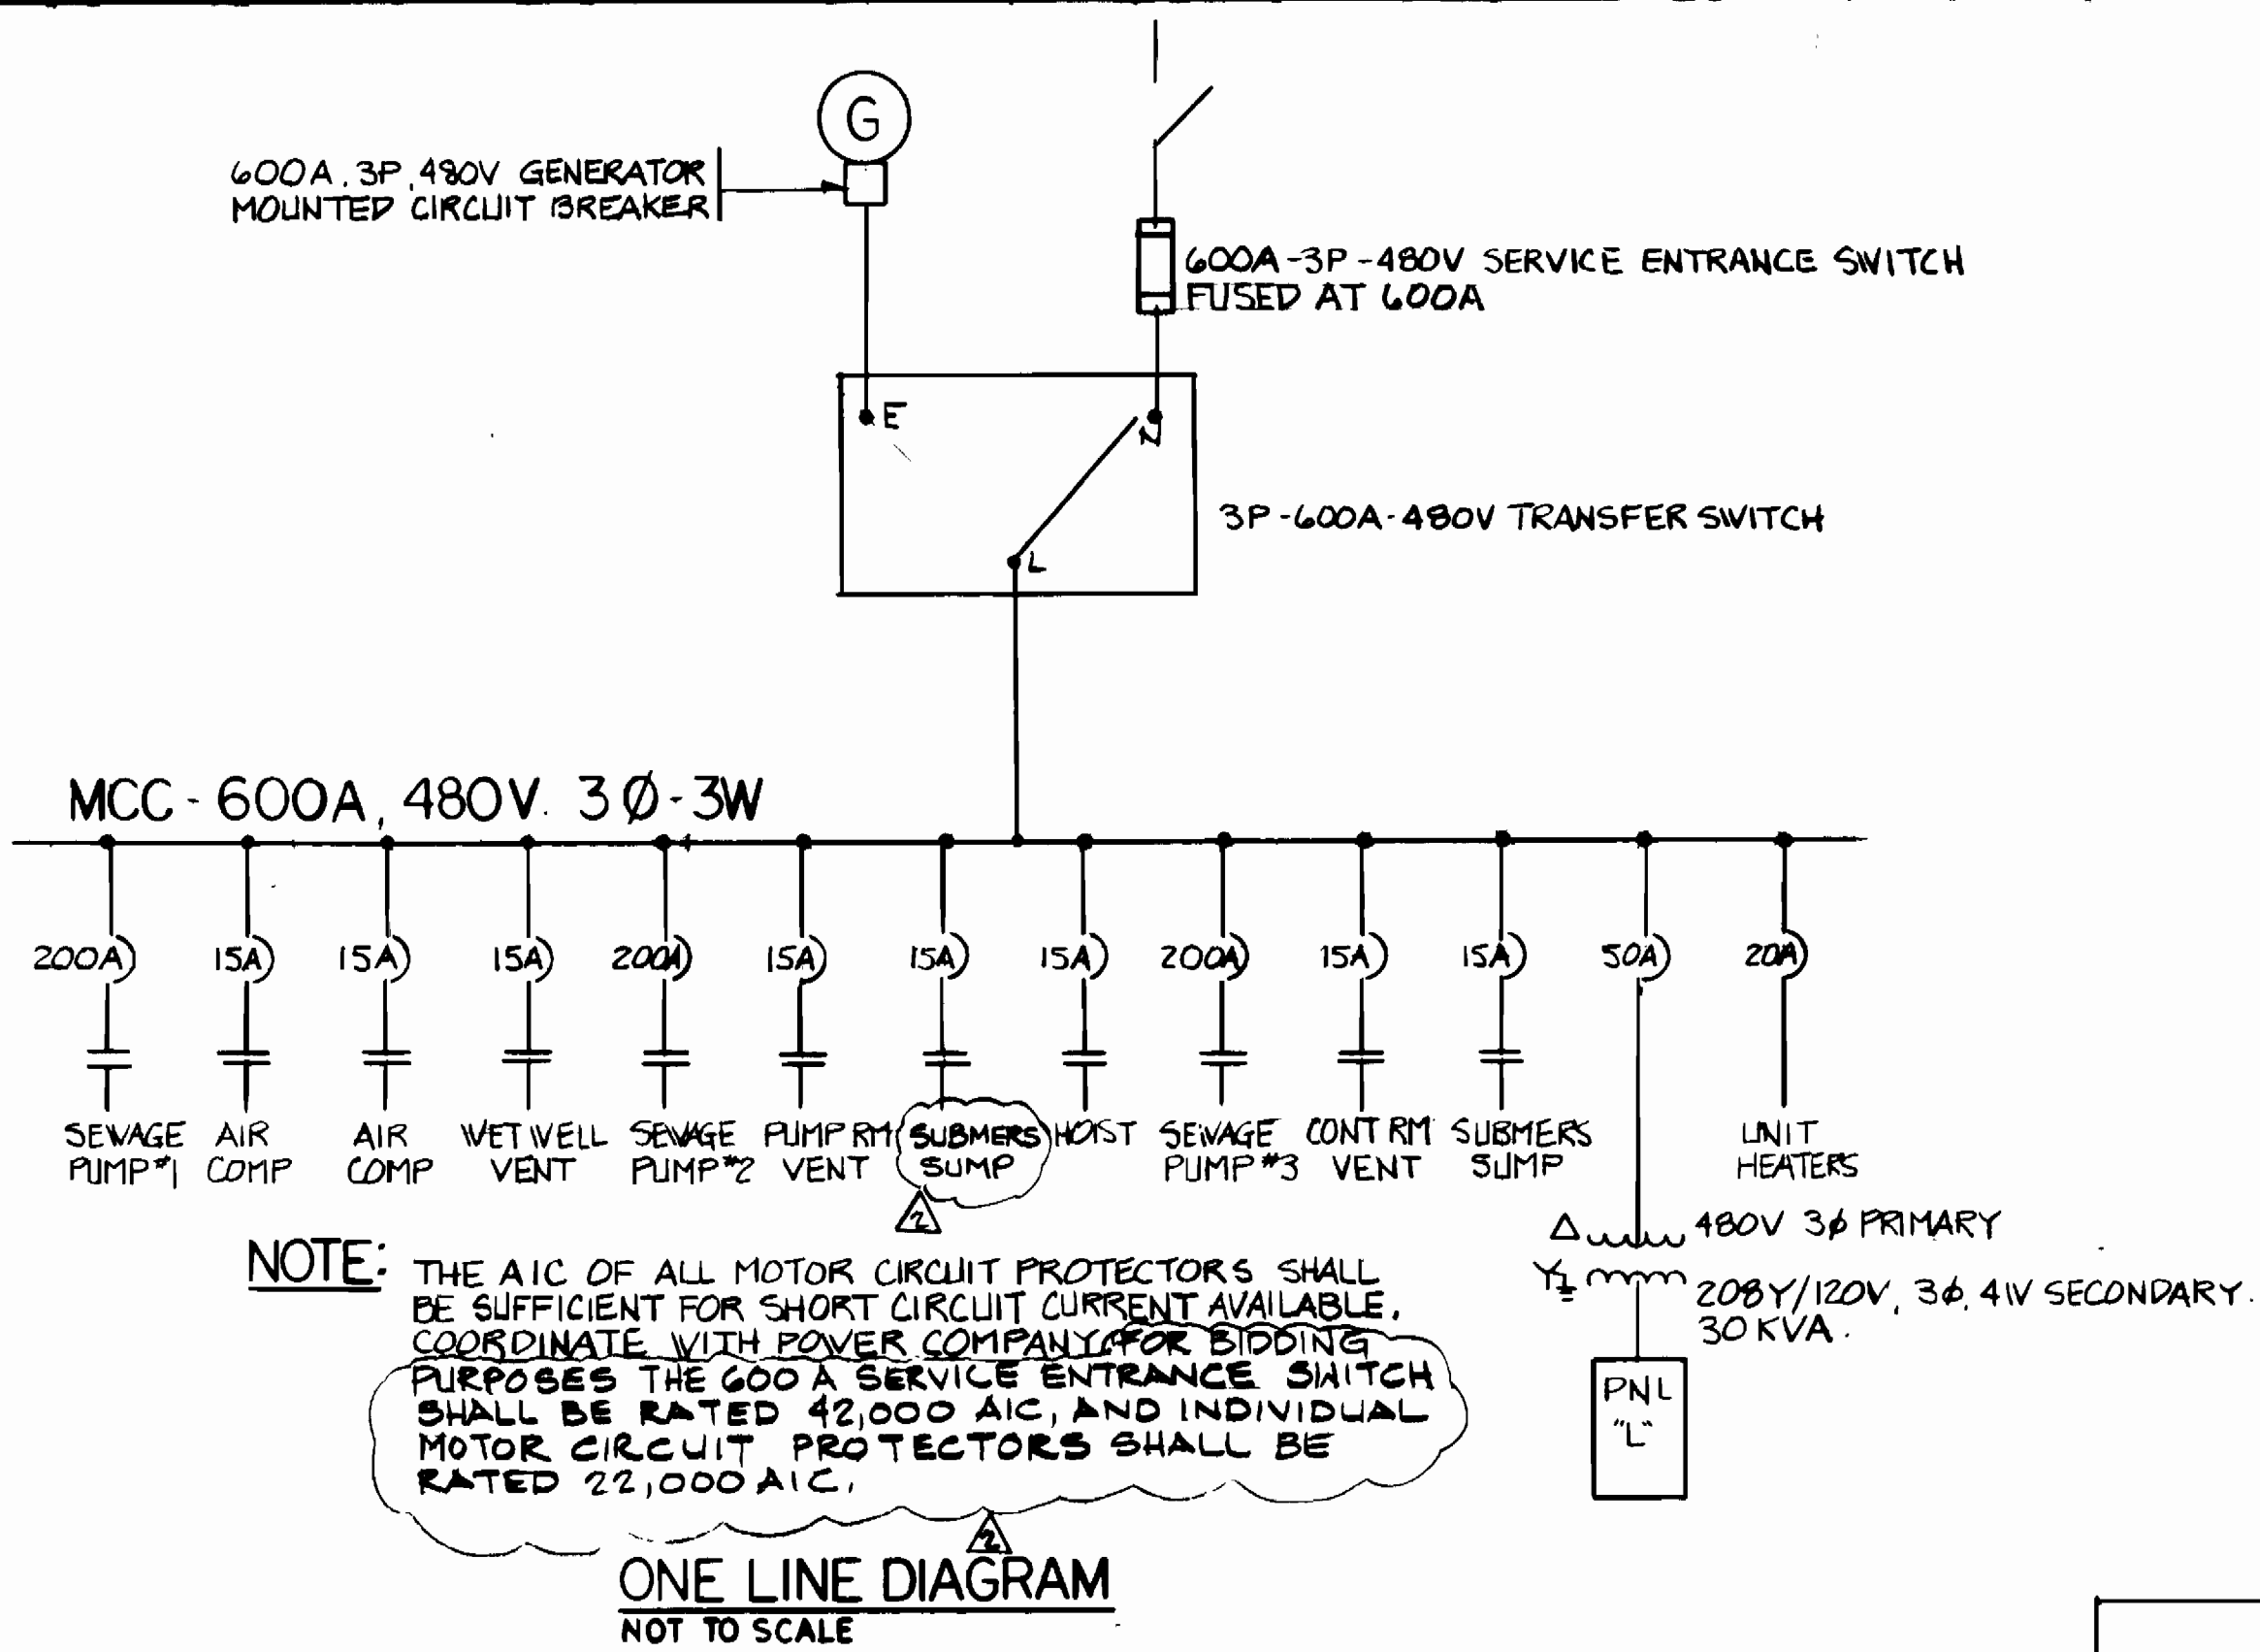 G
600A. 3P, 480V GENERATOR
MOUNTED CIRCUIT BREAKER
600A-3P-480V SERVICE ENTRANCE SWITCH
FUSED AT 600A
E
N
L
3P-600A-480V TRANSFER SWITCH
MCC-600A, 480V. 3Ø-3W
200A
15A
15A
15A
200A
15A
15A
15A
200A
15A
15A
50A
20A
SEWAGE
PUMP#1
AIR
COMP
AIR
COMP
WET WELL
VENT
SEWAGE
PUMP#2
PUMP RM
VENT
SUBMERS
SUMP
HOIST
SEWAGE
PUMP#3
CONT RM
VENT
SUBMERS
SUMP
UNIT
HEATERS
2
Δ
480V 3ϕ PRIMARY
Y
208Y/120V, 3ϕ, 4W SECONDARY.
30 KVA.
PNL
"L"
NOTE:
THE AIC OF ALL MOTOR CIRCUIT PROTECTORS SHALL
BE SUFFICIENT FOR SHORT CIRCUIT CURRENT AVAILABLE.
COORDINATE WITH POWER COMPANY FOR BIDDING
PURPOSES THE 600 A SERVICE ENTRANCE SWITCH
SHALL BE RATED 42,000 AIC, AND INDIVIDUAL
MOTOR CIRCUIT PROTECTORS SHALL BE
RATED 22,000 AIC.
2
ONE LINE DIAGRAM
NOT TO SCALE